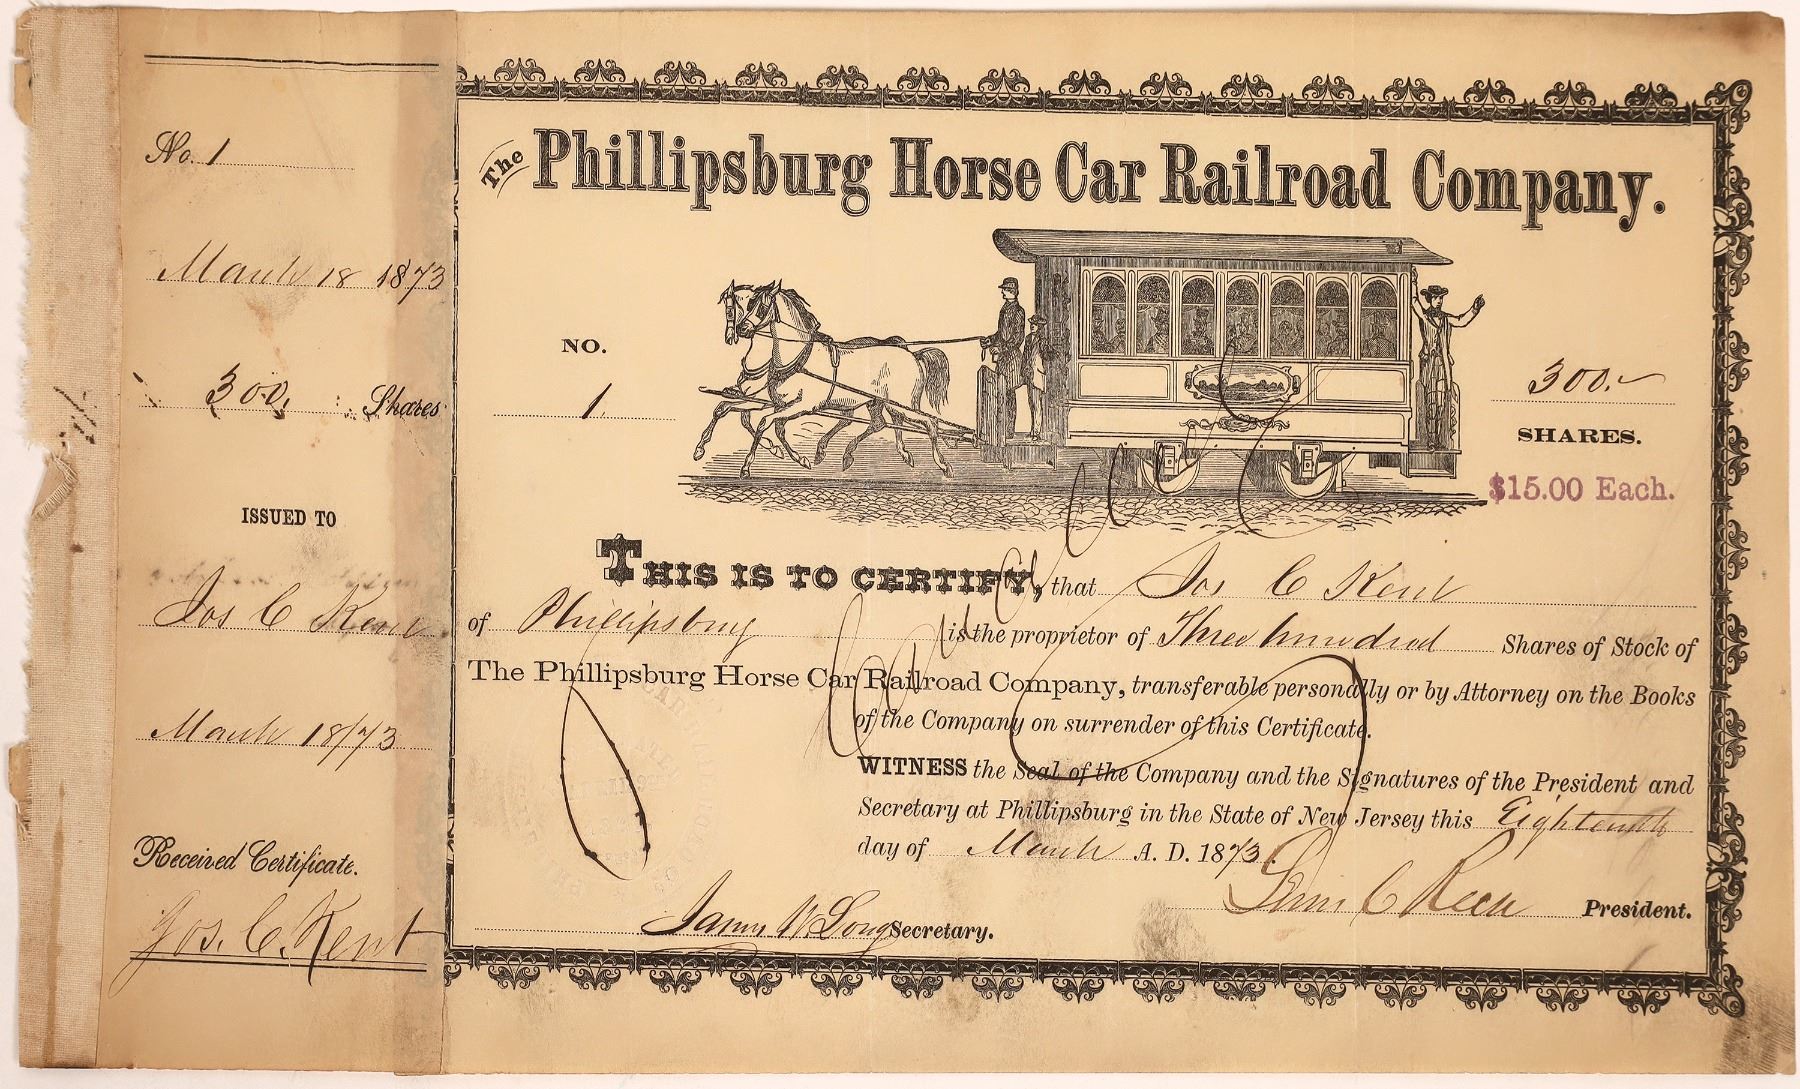 No. 1
March 18 1873
300. Shares
ISSUED TO
Jos C Kent
March 18/73
Received Certificate.
Jos. C. Kent
The Phillipsburg Horse Car Railroad Company.
NO.
1
300.
SHARES.
$15.00 Each.
THIS IS TO CERTIFY, that Jos C Kent
of Phillipsburg is the proprietor of Three hundred Shares of Stock of
The Phillipsburg Horse Car Railroad Company, transferable personally or by Attorney on the Books
of the Company on surrender of this Certificate.
WITNESS the Seal of the Company and the Signatures of the President and
Secretary at Phillipsburg in the State of New Jersey this Eighteenth
day of March A. D. 1873.
James W. Long Secretary.
C Reese President.
Cancelled